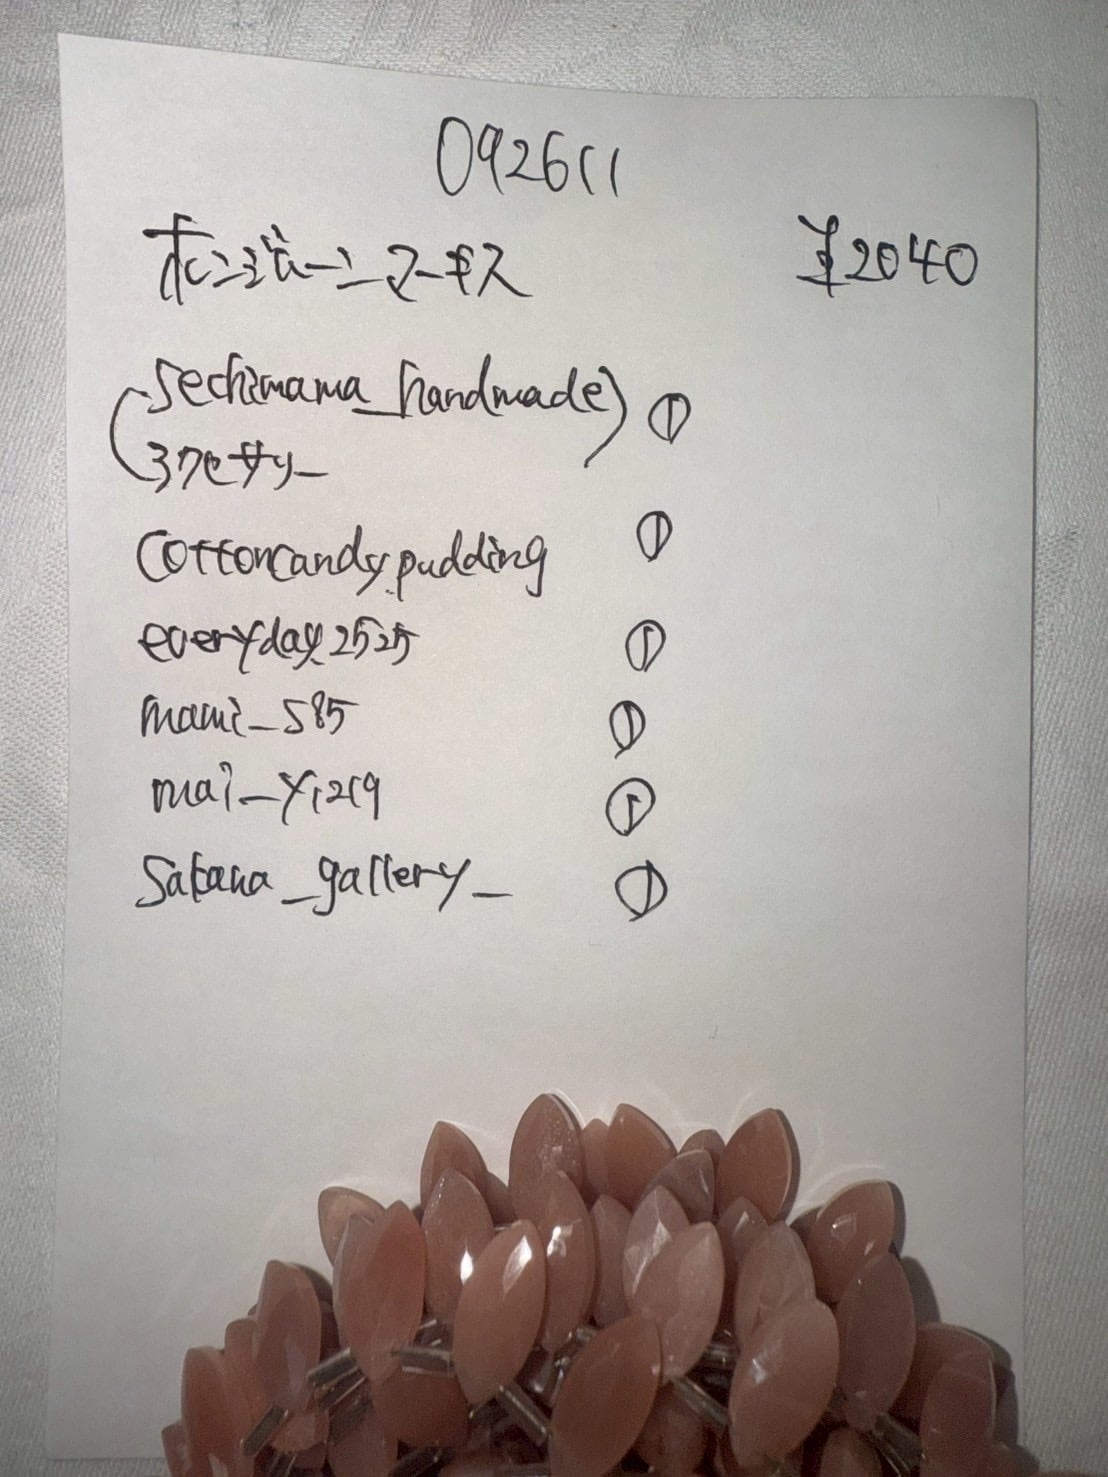 092611
ホンジュラスマーキス ¥2040
sechimama_handmade ①
ろアクセサリー
cottoncandy.pudding ①
everyday.2525 ①
mami_585 ①
mai_y1219 ①
Sakana_gallery_ ①